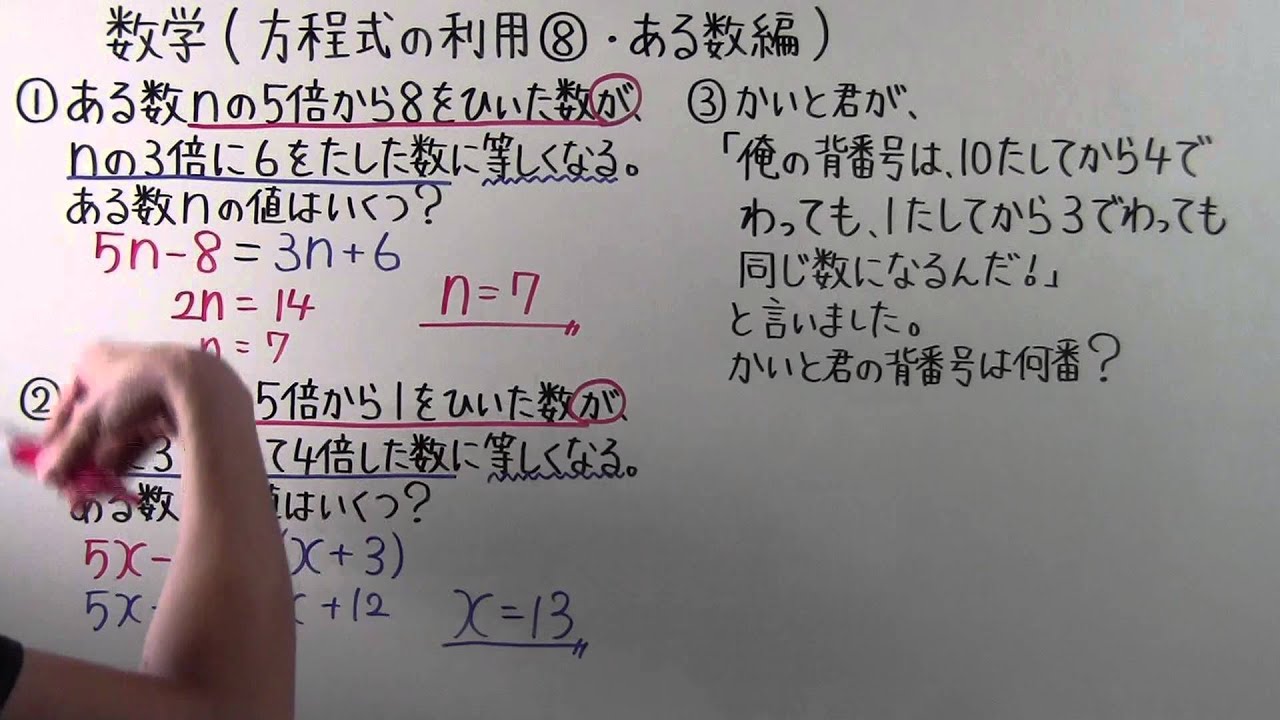 数学(方程式の利用⑧・ある数編)
①ある数nの5倍から8をひいた数が、
nの3倍に6をたした数に等しくなる。
ある数nの値はいくつ?
5n-8=3n+6
2n=14
n=7
n=7
② 5倍から1をひいた数が、
3 て4倍した数に等しくなる。
ある数 値はいくつ?
5x- (x+3)
5x x+12
x=13
③かいと君が、
「俺の背番号は、10たしてから4で
わっても、1たしてから3でわっても
同じ数になるんだ!」
と言いました。
かいと君の背番号は何番?